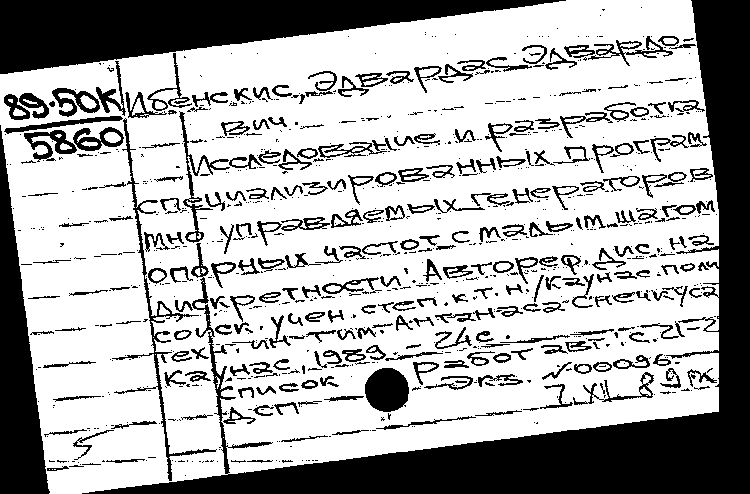 89-50К
5860
Ибенскис, Эдвардас Эдвардо-
вич.
Исследование и разработка
специализированных програм-
мно управляемых генераторов
опорных частот с малым шагом
дискретности: Автореф. дис. на
соиск. учен. степ. к.т.н. / Каунас. поли
техн. ин-т им. Антанаса Снечкуса
Каунас, 1989. - 24 с.
Список работ авт.: с. 21-2
ДСП Экз. №00096.
7.XII 89